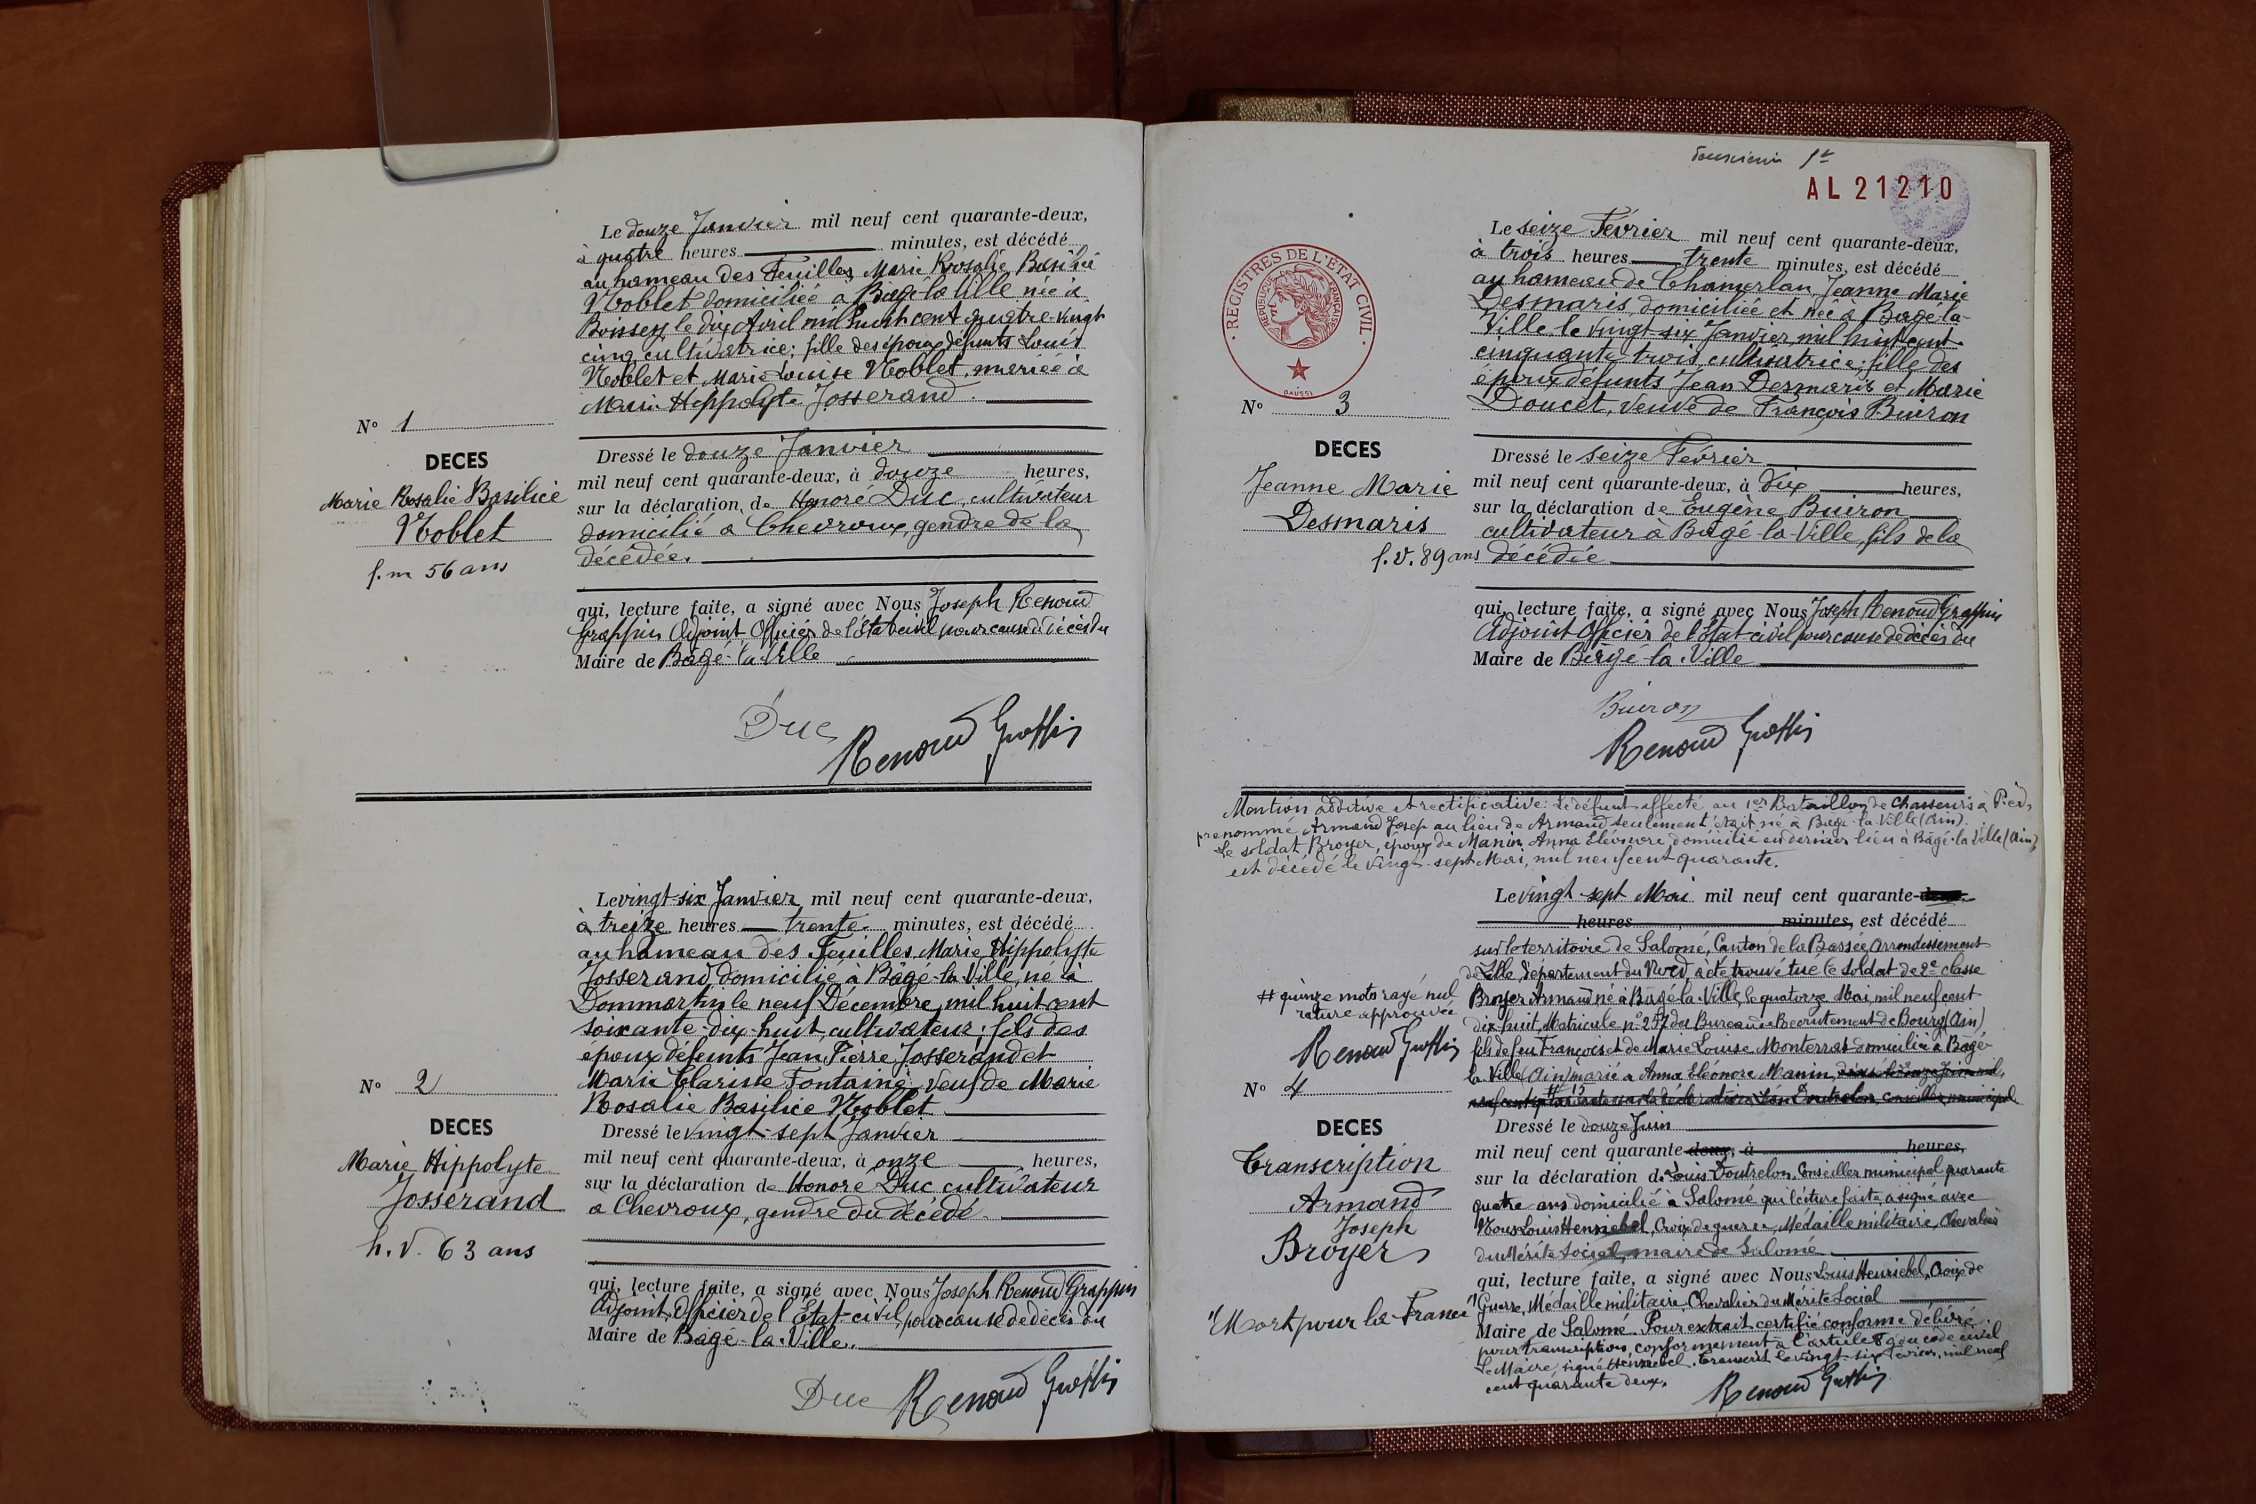 Le douze Janvier mil neuf cent quarante-deux,
à quatre heures minutes, est décédé
au hameau des Feuilles Marie Rosalie Basilice
Noblet domiciliée à Bâgé la Ville née à
Boissey le dix Avril mil huit cent quatre-vingt
cinq cultivatrice; fille des époux défunts Louis
Noblet et Marie Louise Noblet, mariée à
Marie Hippolyte Josserand.
N° 1
DECES
Marie Rosalie Basilice
Noblet
f. m 56 ans
Dressé le douze Janvier
mil neuf cent quarante-deux, à douze heures,
sur la déclaration de Honoré Duc, cultivateur
domicilié à Chevroux, gendre de la
décédée.
qui, lecture faite, a signé avec Nous Joseph Renoud
Grappin Adjoint Officier de l'état civil pour cause de décès du
Maire de Bâgé-la-Ville
Duc
Renoud Grappin
Le vingt-six Janvier mil neuf cent quarante-deux,
à treize heures trente minutes, est décédé
au hameau des Feuilles Marie Hippolyte
Josserand, domicilié à Bâgé-la-Ville, né à
Dommartin le neuf Décembre mil huit cent
soixante-dix-huit, cultivateur; fils des
époux défunts Jean Pierre Josserand et
Marie Clarisse Fontaine, veuf de Marie
Rosalie Basilice Noblet
N° 2
DECES
Marie Hippolyte
Josserand
h. v. 63 ans
Dressé le vingt-sept Janvier
mil neuf cent quarante-deux, à onze heures,
sur la déclaration de Honoré Duc, cultivateur
à Chevroux, gendre du décédé.
qui, lecture faite, a signé avec Nous Joseph Renoud Grappin
Adjoint, Officier de l'État-civil, pour cause de décès du
Maire de Bâgé-la-Ville.
Duc Renoud Grappin
AL 21210
REGISTRES DE L'ETAT CIVIL
REPUBLIQUE FRANÇAISE
Le seize Février mil neuf cent quarante-deux,
à trois heures trente minutes, est décédé
au hameau de Chamerlan, Jeanne Marie
Desmaris, domiciliée et née à Bâgé-la-
Ville le vingt-six Janvier mil huit cent
cinquante trois, cultivatrice; fille des
époux défunts Jean Desmaris et Marie
Doucet, veuve de François Buiron
N° 3
DECES
Jeanne Marie
Desmaris
f. v. 89 ans
Dressé le seize Février
mil neuf cent quarante-deux, à dix heures,
sur la déclaration de Eugène Buiron
cultivateur à Bâgé-la-Ville, fils de la
décédée
qui, lecture faite, a signé avec Nous Joseph Renoud Grappin
Adjoint Officier de l'Etat-civil pour cause de décès du
Maire de Bâgé-la-Ville
Buiron
Renoud Grappin
Mention additive et rectificative: Le défunt affecté au 1er Bataillon de Chasseurs à Pied,
prénommé Armand Josep au lieu de Armand seulement était né à Bâgé-la-Ville (Ain).
Le soldat Broyer, époux de Manin Anna Eléonore, domicilié en dernier lieu à Bâgé-la-Ville (Ain),
est décédé le vingt-sept Mai, mil neuf cent quarante.
Le vingt-sept Mai mil neuf cent quarante-
heures minutes, est décédé
sur le territoire de Salomé, Canton de la Bassée arrondissement
de Lille, département du Nord, a été trouvé tué le soldat de 2e classe
Broyer Armand né à Bâgé-la-Ville le quatorze Mai, mil neuf cent
dix huit, Matricule n° 257 du Bureau de Recrutement de Bourg (Ain)
fils de feu François et de Marie Louise Monterrat domicilié à Bâgé-
la-Ville (Ain) marié à Anna Eléonore Manin,
sur la déclaration Conseiller municipal
# quinze mots rayé nul
rature approuvée
Renoud Grappin
N° 4
DECES
Transcription
Armand
Joseph
Broyer
"Mort pour la France"
Dressé le douze Juin
mil neuf cent quarante-deux, à heures,
sur la déclaration de Louis Doutrelon, Conseiller municipal, quarante
quatre ans domicilié à Salomé qui lecture faite, a signé avec
Nous Louis Henniebel, Croix de guerre, Médaille militaire, Chevalier
du Mérite Social, maire de Salomé
qui, lecture faite, a signé avec Nous Louis Henniebel, Croix de
Guerre, Médaille militaire, Chevalier du Mérite Social
Maire de Salomé. Pour extrait certifié conforme délivré
pour transcription, conformément à l'article 80 du code civil
Le Maire, signé Henniebel. Transcrit le vingt-six Février, mil neuf
cent quarante deux,
Renoud Grappin